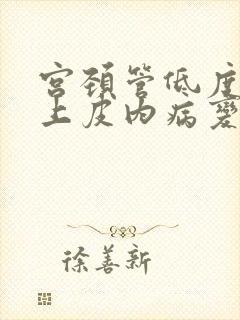 宫颈管低度
上皮内病变
徐善新